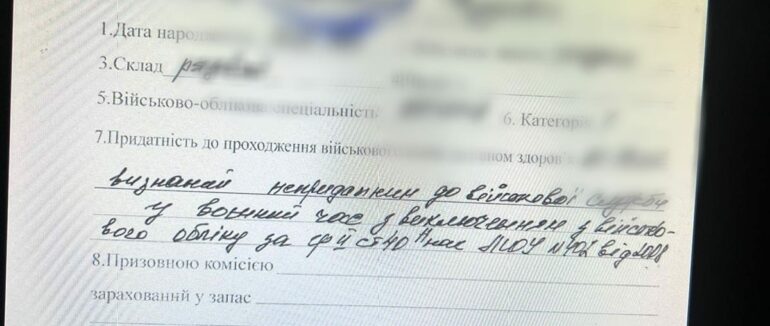 1.Дата народ
3.Склад рядові
5.Військово-облікова спеціальність 6. Категорія
7.Придатність до проходження військово станом здоров'
визнаний непридатним до військової служби
у воєнний час з виключенням з військо-
вого обліку за гр ІІ ст 40 нак МОУ №402 від 2008
8.Призовною комісією
зарахований у запас